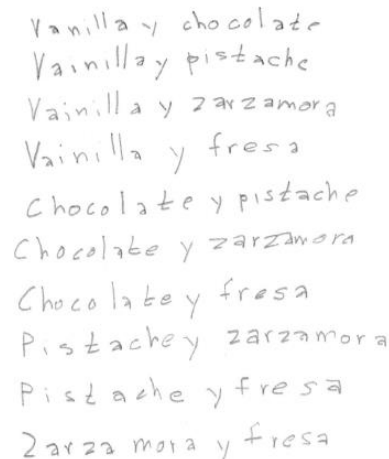 Vanilla y chocolate
Vainilla y pistache
Vainilla y zarzamora
Vainilla y fresa
Chocolate y pistache
Chocolate y zarzamora
Chocolate y fresa
Pistache y zarzamora
Pistache y fresa
Zarzamora y fresa